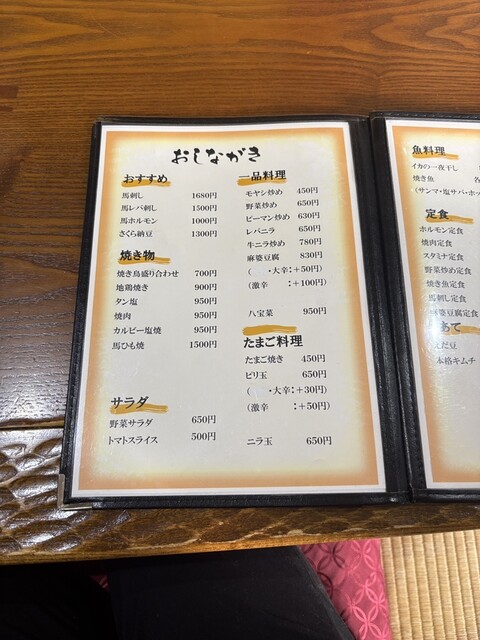 おしながき
おすすめ
馬刺し 1680円
馬レバ刺し 1500円
馬ホルモン 1000円
さくら納豆 1300円
焼き物
焼き鳥盛り合わせ 700円
地鶏焼き 900円
タン塩 950円
焼肉 950円
カルビー塩焼 950円
馬ひも焼 1500円
サラダ
野菜サラダ 650円
トマトスライス 500円
一品料理
モヤシ炒め 450円
野菜炒め 650円
ピーマン炒め 630円
レバニラ 650円
牛ニラ炒め 780円
麻婆豆腐 830円
( ・大辛:+50円)
(激辛 :+100円)
八宝菜 950円
たまご料理
たまご焼き 450円
ピリ玉 650円
( ・大辛:+30円)
(激辛 :+50円)
ニラ玉 650円
魚料理
イカの一夜干し
焼き魚 各
(サンマ・塩サバ・ホッ
定食
ホルモン定食
焼肉定食
スタミナ定食
野菜炒め定食
焼き魚定食
馬刺し定食
麻婆豆腐定食
あて
えだ豆
本格キムチ